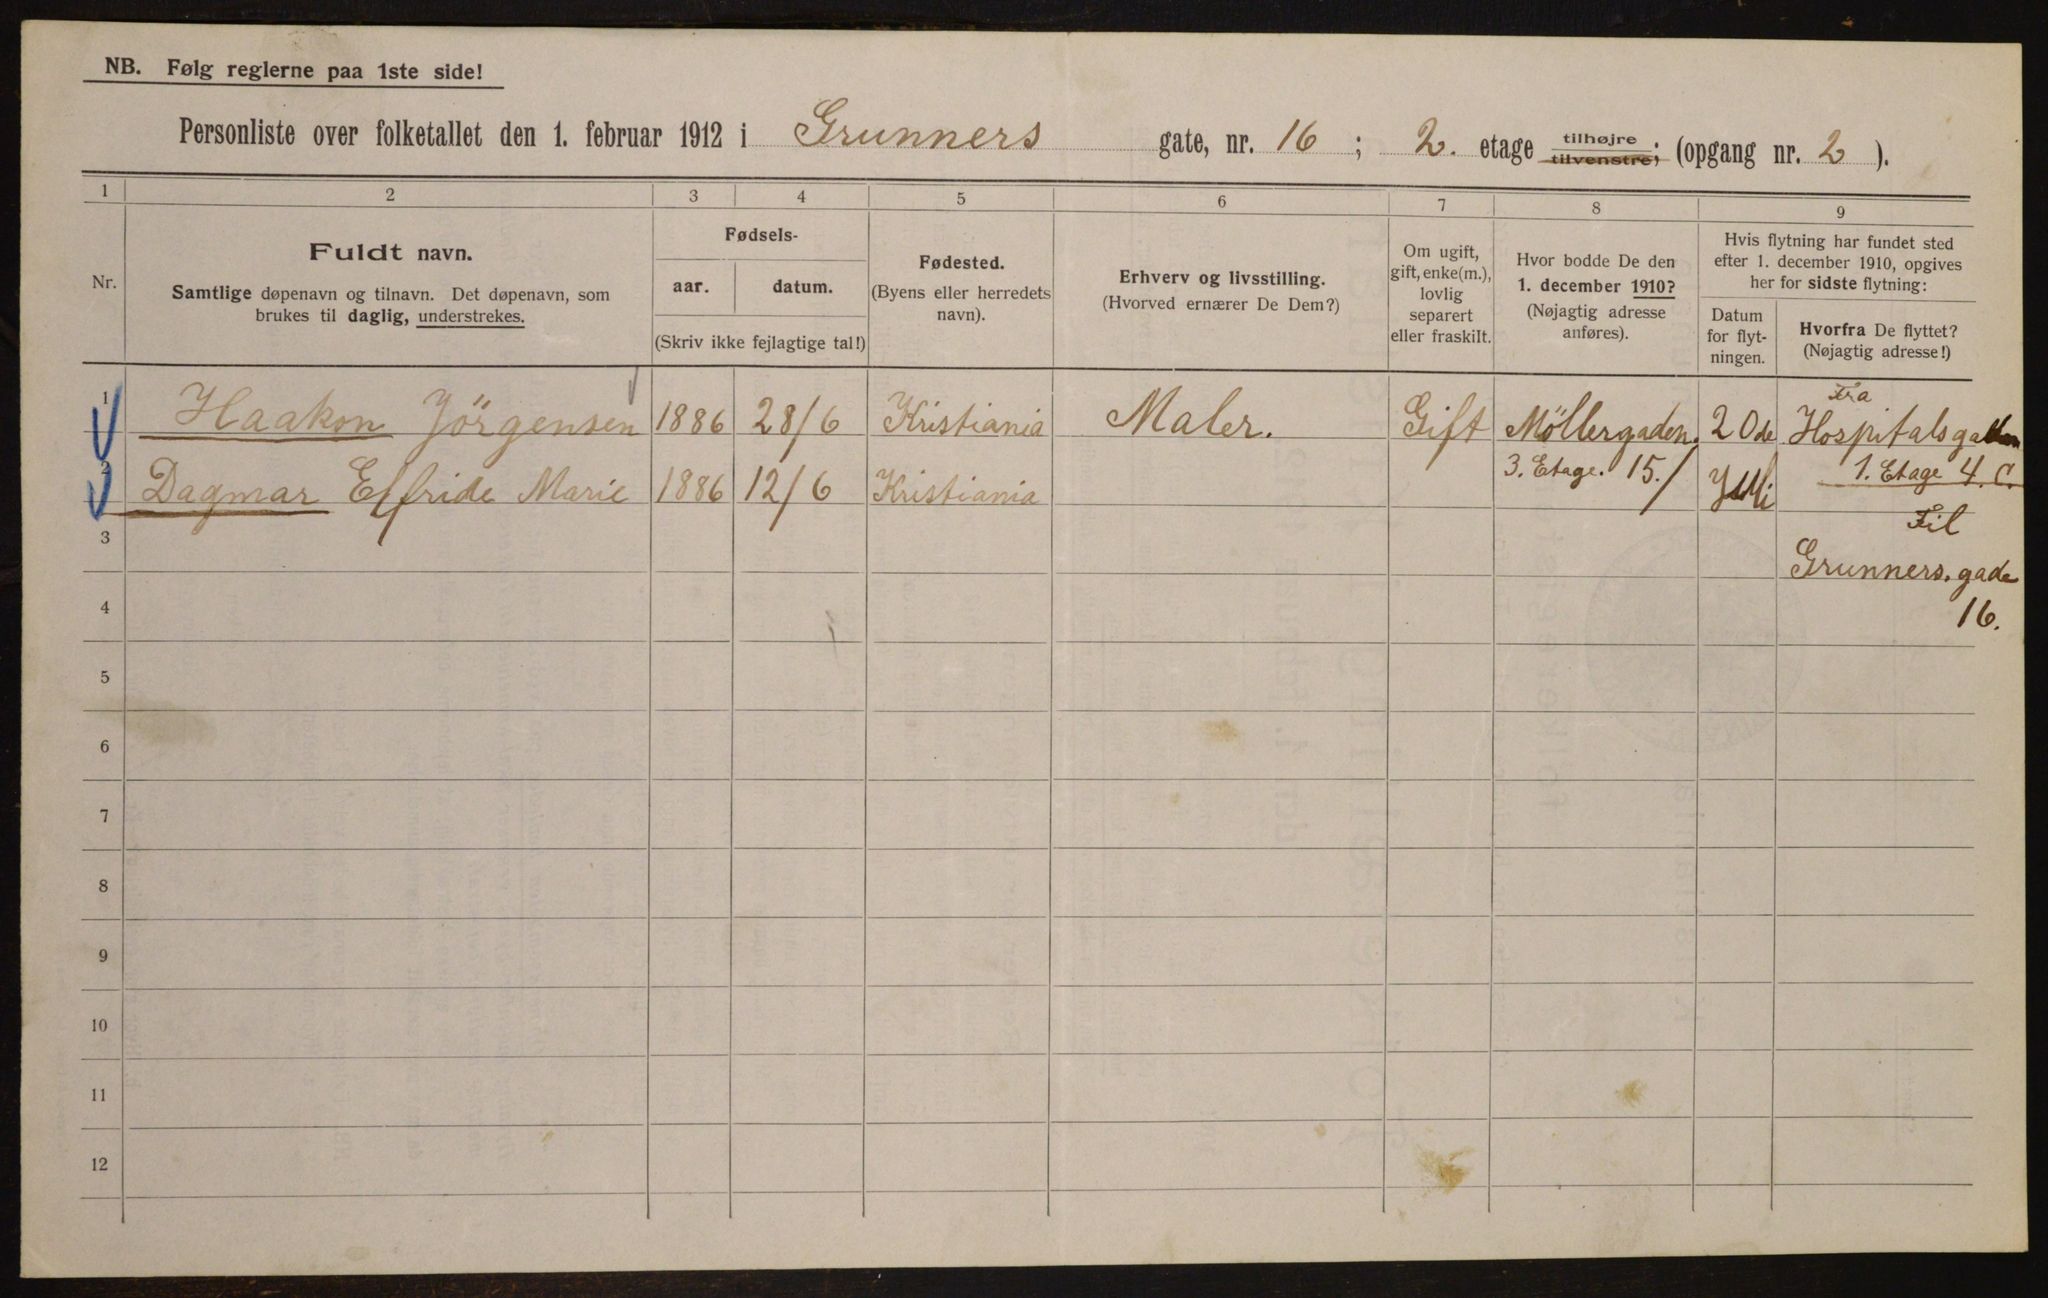 NB. Følg reglerne paa 1ste side!
Personliste over folketallet den 1. februar 1912 i Grunners gate, nr. 16 ; 2. etage tilhøjre tilvenstre; (opgang nr. 2 ).
1 2 3 4 5 6 7 8 9
Nr.
Fuldt navn.
Samtlige døpenavn og tilnavn. Det døpenavn, som
brukes til daglig, understrekes.
Fødsels-
aar. datum.
(Skriv ikke fejlagtige tal!)
Fødested.
(Byens eller herredets
navn).
Erhverv og livsstilling.
(Hvorved ernærer De Dem?)
Om ugift,
gift, enke(m.),
lovlig
separert
eller fraskilt.
Hvor bodde De den
1. december 1910?
(Nøjagtig adresse
anføres).
Hvis flytning har fundet sted
efter 1. december 1910, opgives
her for sidste flytning:
Datum
for flyt-
ningen.
Hvorfra De flyttet?
(Nøjagtig adresse!)
1 Haakon Jörgensen 1886 28/6 Kristiania Maler. Gift Möllergaden. 20de Fra Hospitalsgaden
2 Dagmar Elfride Marie 1886 12/6 Kristiania 3. Etage. 15./ Juli 1. Etage 4. C.
3 Til
Grunners. gade
4 16.
5
6
7
8
9
10
11
12